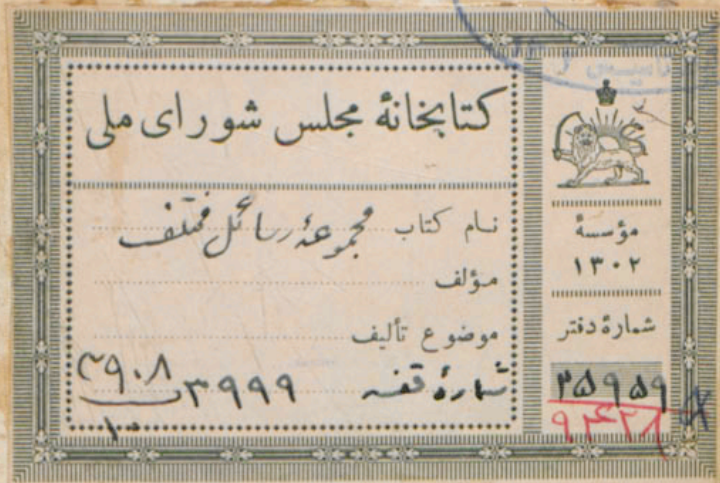 کتابخانهٔ مجلس شورای ملی
نام کتاب مجموعهٔ رسائل مختلف
مؤلف
موضوع تألیف
شمارهٔ قفسه ۳۹۹۹
۳۹۰۸
۱۰
مؤسسهٔ
۱۳۰۲
شمارهٔ دفتر
۳۵۹۵۹
۹۴۲۸
تأسیس